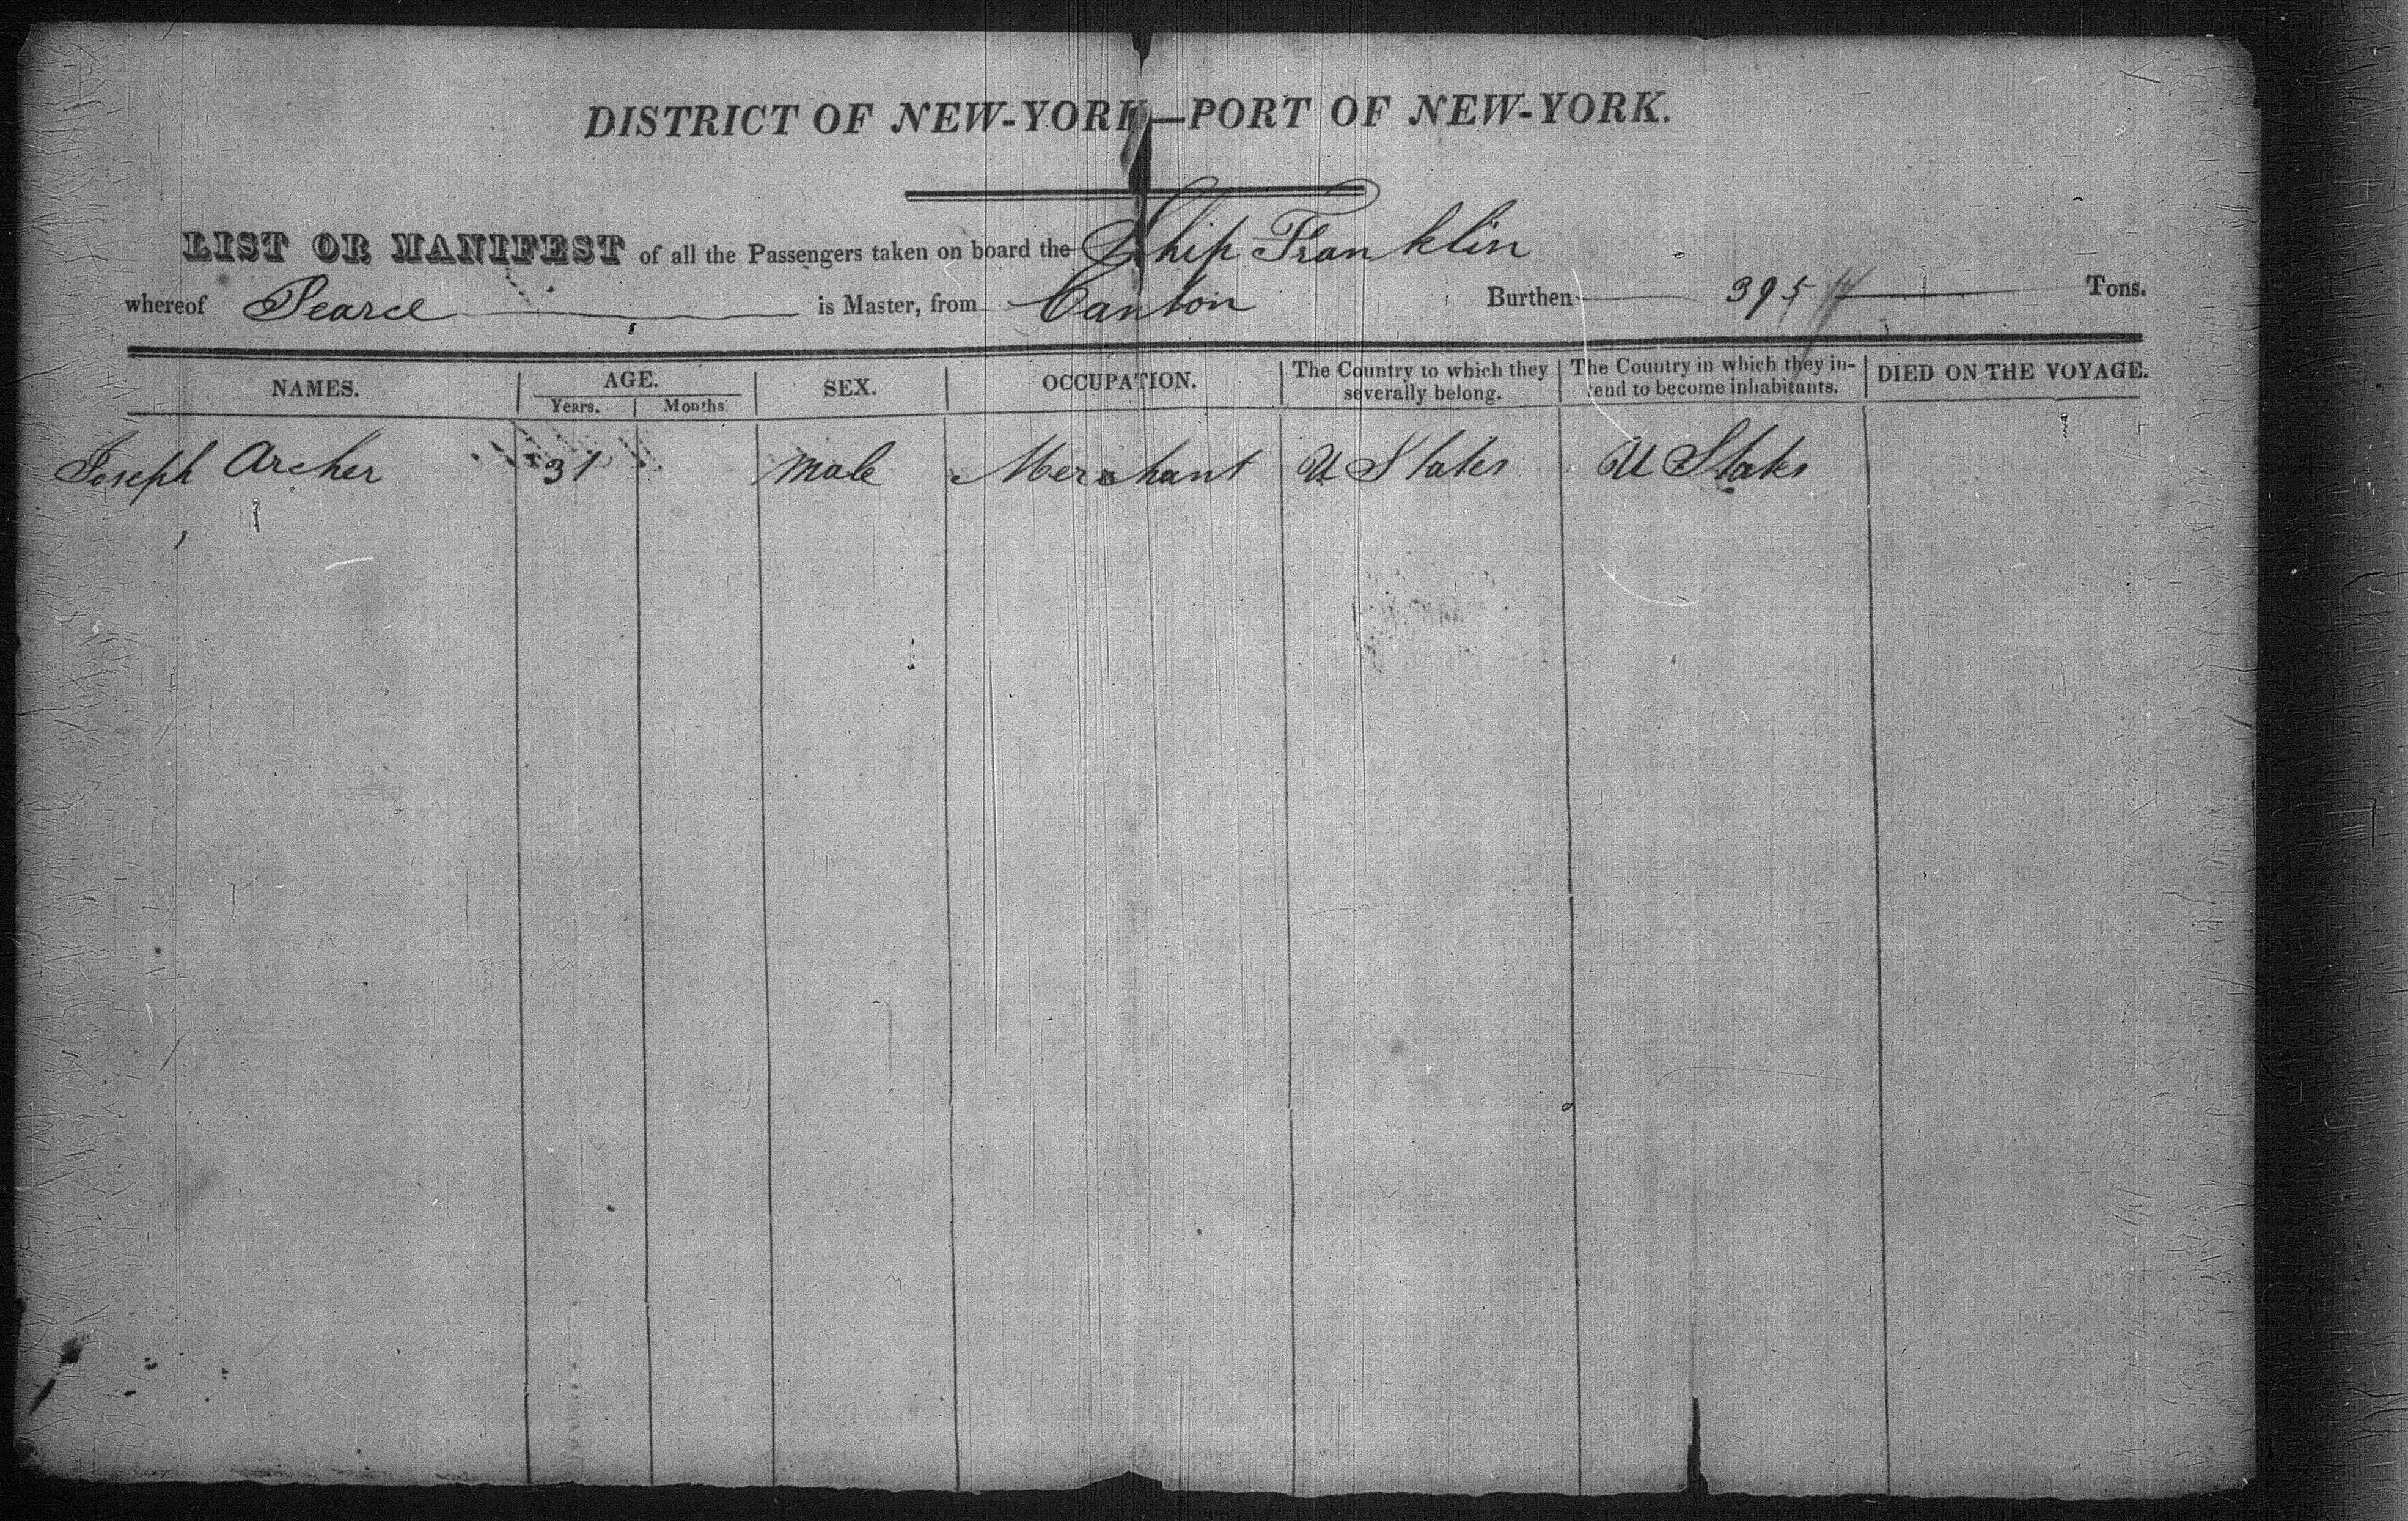 DISTRICT OF NEW-YORK—PORT OF NEW-YORK.
LIST OR MANIFEST of all the Passengers taken on board the Ship Franklin
whereof Pearce is Master, from Canton Burthen 395 Tons.
NAMES. AGE. SEX. OCCUPATION. The Country to which they severally belong. The Country in which they intend to become inhabitants. DIED ON THE VOYAGE.
Years. Months.
Joseph Archer 31 Male Merchant U States U States